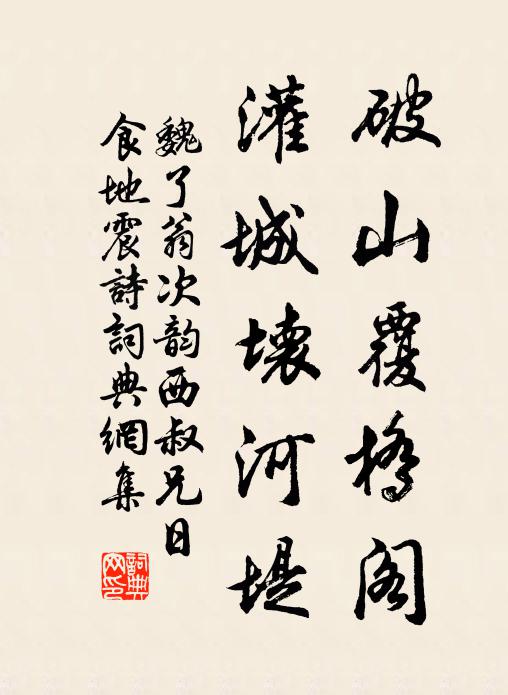 破山覆橋阁
灌城壊河堤
魏了翁次韵西叔兄日
食地震詩詞典網集
詞典
网印